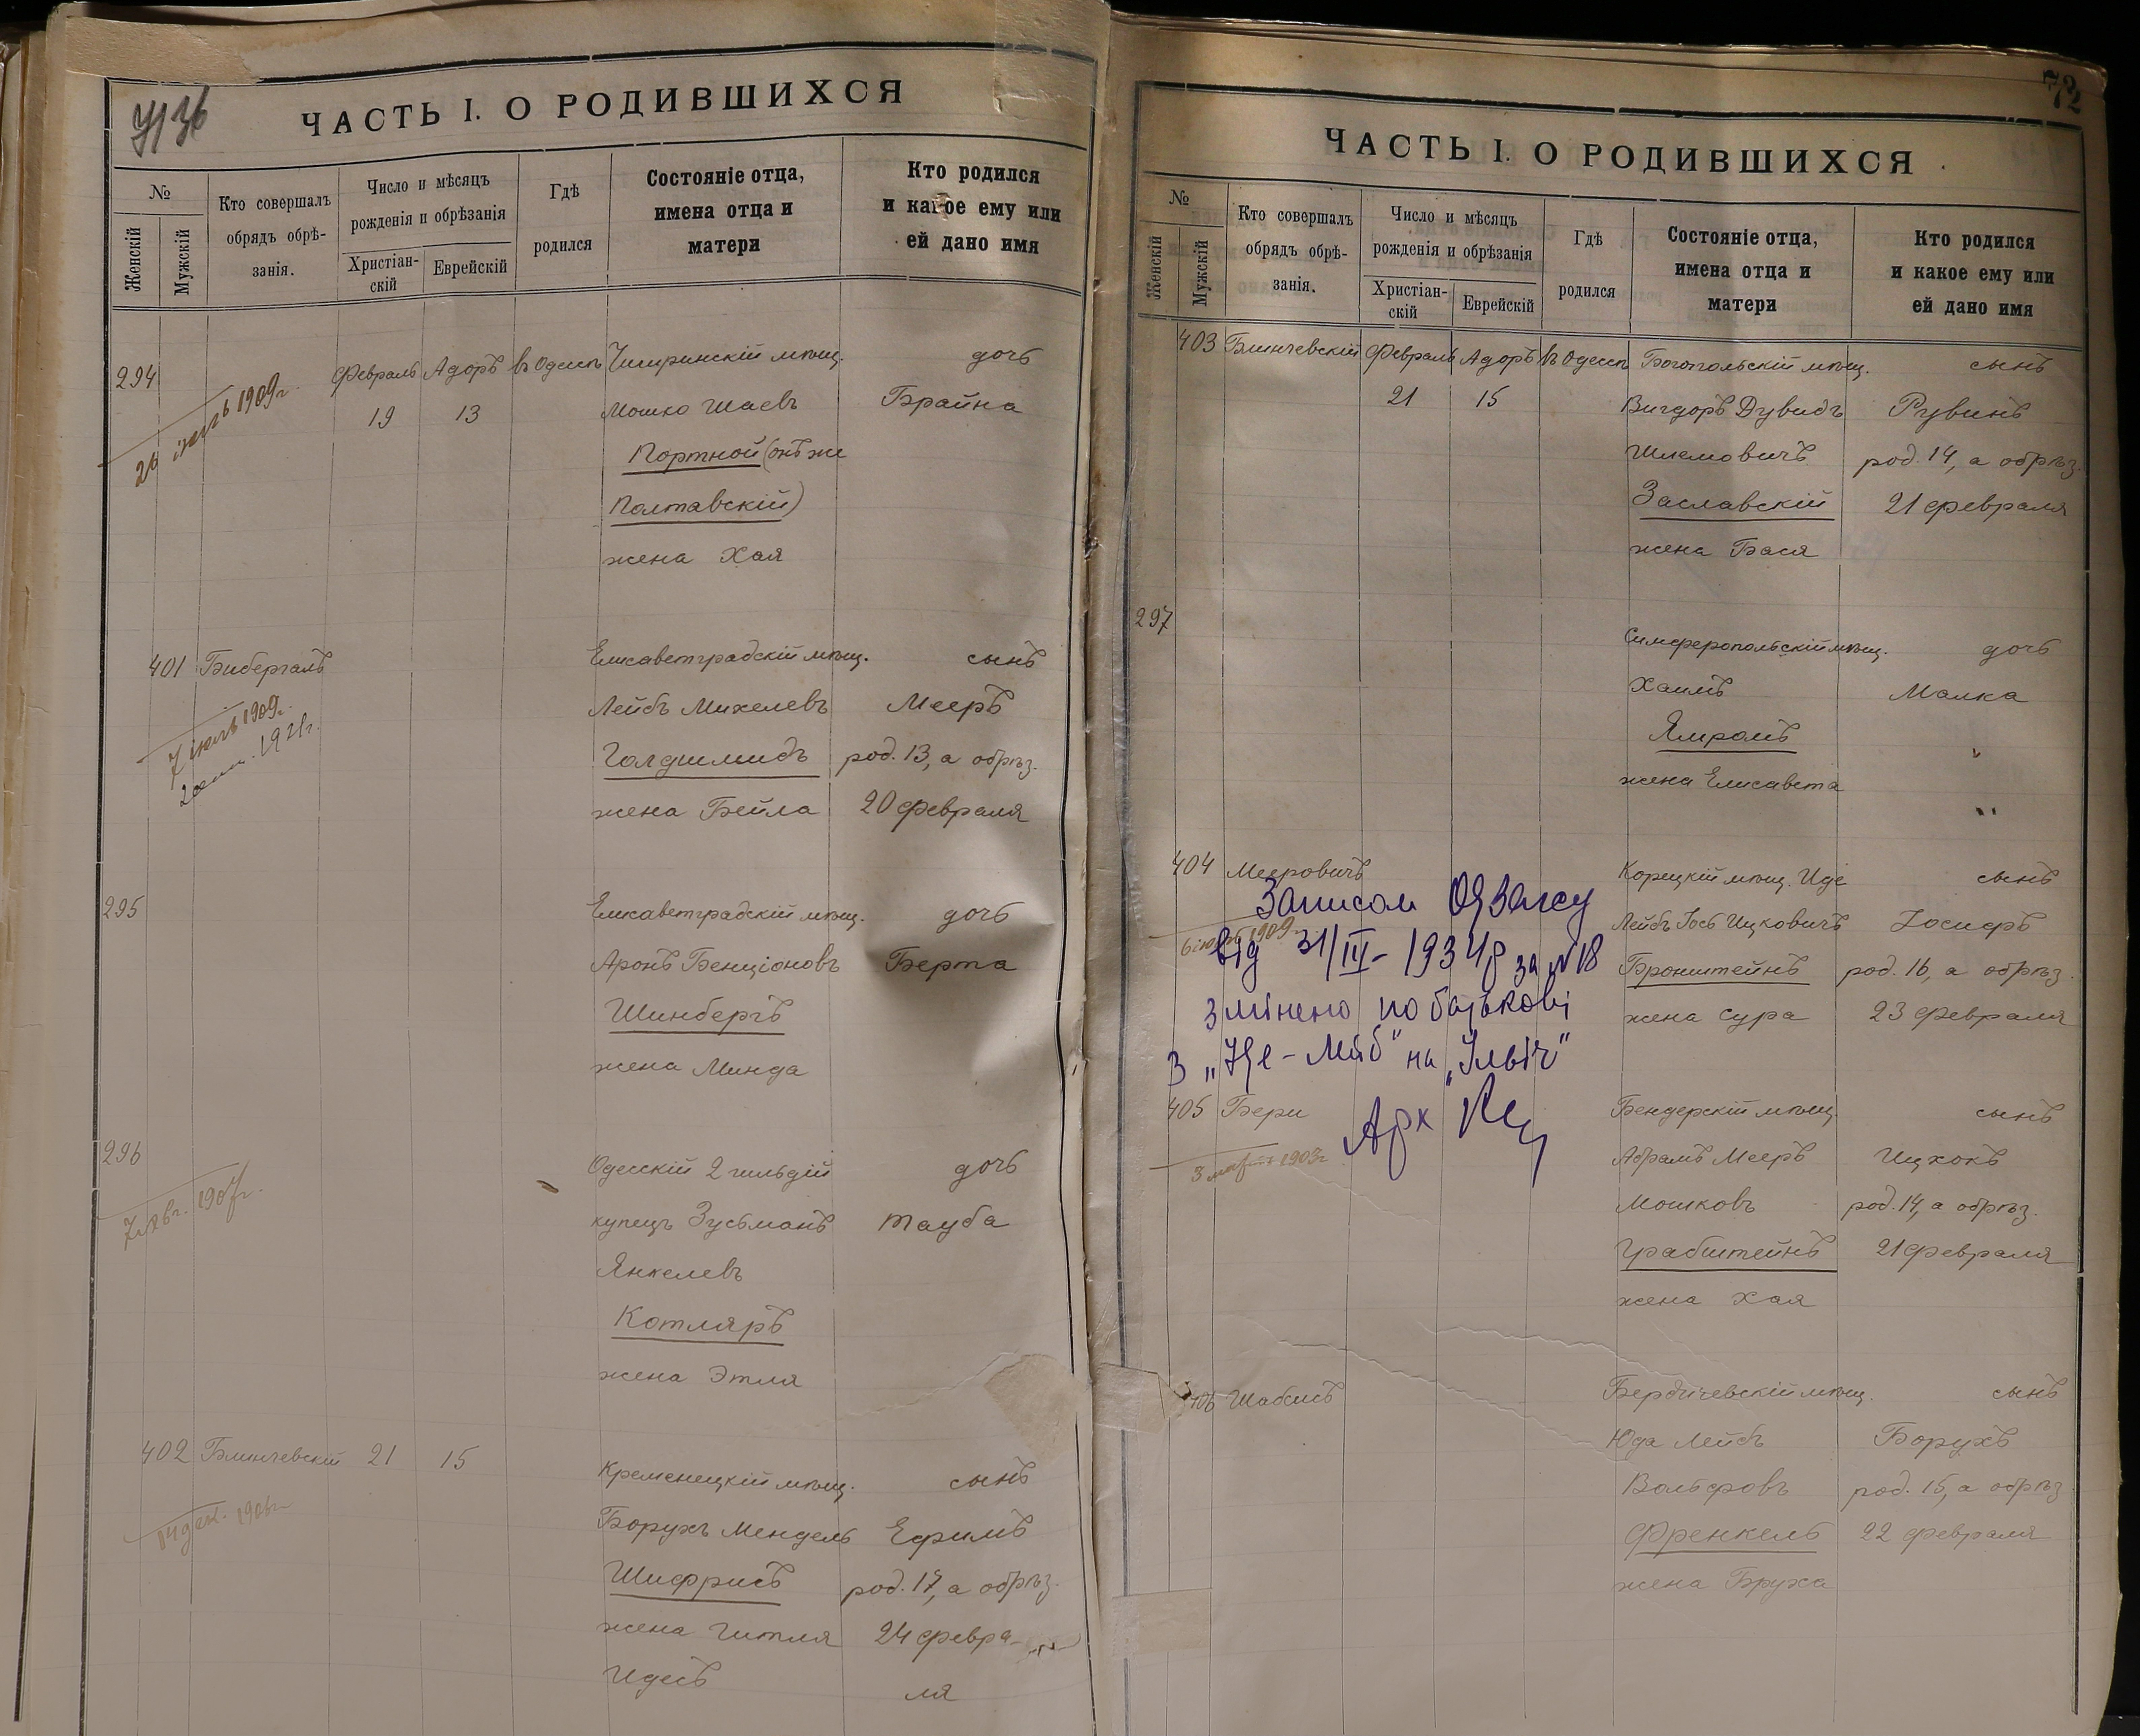 ЧАСТЬ I. О РОДИВШИХСЯ
№
Женскій
Мужскій
Кто совершалъ
обрядъ обрѣ-
занія.
Число и мѣсяцъ
рожденія и обрѣзанія
Христіан-
скій
Еврейскій
Гдѣ
родился
Состояніе отца,
имена отца и
матери
Кто родился
и какое ему или
ей дано имя
294 Февраль Адоръ въ Одессѣ Чигиринскій мѣщ. дочь
19 13 Мошко Шаевъ Брайна
Портной (онъ же
Полтавскій)
жена Хая
26 1909г.
401 Бибергалъ Елисаветградскій мѣщ. сынъ
Лейбъ Михелевъ Мееръ
Голдшмидъ род. 13, а обрѣз.
жена Бейла 20 февраля
7 1909г.
1921г.
295 Елисаветградскій мѣщ. дочь
Аронъ Бенціоновъ Берта
Шинбергъ
жена Минда
296 Одесскій 2 гильдій дочь
купецъ Зусьманъ Тауба
Янкелевъ
Котляръ
жена Этля
1907г.
402 Блинчевскій 21 15 Кременецкій мѣщ. сынъ
Борухъ Мендель Ефимъ
Шифрисъ род. 17, а обрѣз.
жена Гитля 24 февра-
Идесъ ля
14 дек. 1906г.
72
ЧАСТЬ I. О РОДИВШИХСЯ
№
Женскій
Мужскій
Кто совершалъ
обрядъ обрѣ-
занія.
Число и мѣсяцъ
рожденія и обрѣзанія
Христіан-
скій
Еврейскій
Гдѣ
родился
Состояніе отца,
имена отца и
матери
Кто родился
и какое ему или
ей дано имя
403 Блинчевскій Февраль Адоръ въ Одессѣ Богопольскій мѣщ. сынъ
21 15 Вигдоръ Дувидъ Рувинъ
Шлемовичъ род. 14, а обрѣз.
Заславскій 21 февраля
жена Бася
297 Симферопольскій мѣщ. дочь
Хаимъ Малка
Ямромъ
жена Елисавета
404 Мееровичъ Корецкій мѣщ. Иде сынъ
Лейбъ Ицковичъ Іосифъ
Бронштейнъ род. 16, а обрѣз.
жена Сура 23 февраля
1909г.
Записом ОЯЗАГСу
від 31/III-1934р за №18
змінено по батькові
з „Іде-Лейб" на „Ільіч"
Арх
405 Бери Бендерскій мѣщ. сынъ
Абрамъ Мееръ Ицхокъ
Мошковъ род. 14, а обрѣз.
Грабштейнъ 21 февраля
жена Хая
3 марта 1903г
406 Шабсисъ Бердичевскій мѣщ. сынъ
Юда Лейбъ Борухъ
Вольфовъ род. 15, а обрѣз
Френкель 22 февраля
жена Бруха